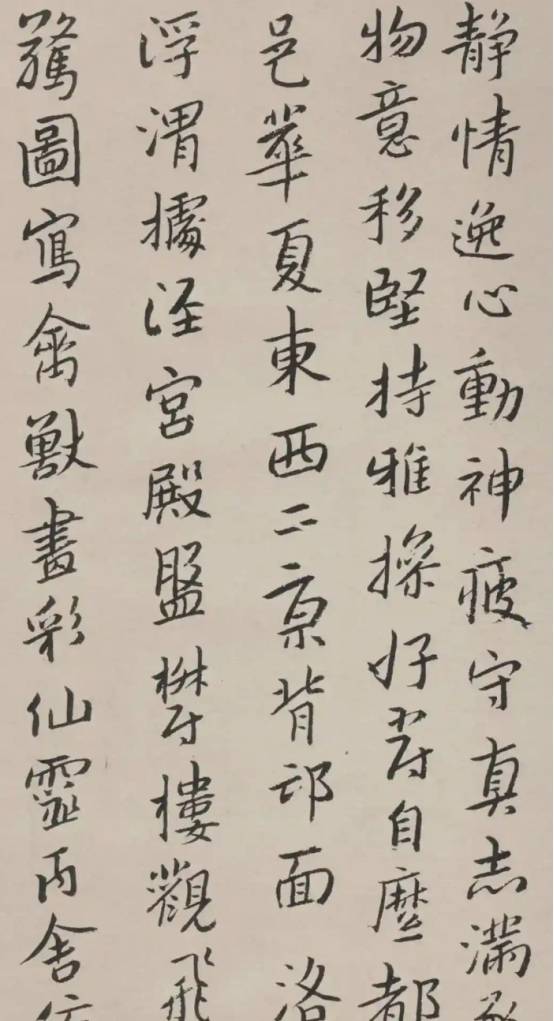 静情逸心動神疲守真志滿逐
物意移堅持雅操好爵自縻都
邑華夏東西二京背邙面洛
浮渭據涇宮殿盤欝樓觀飛
驚圖寫禽獸畫彩仙靈丙舍